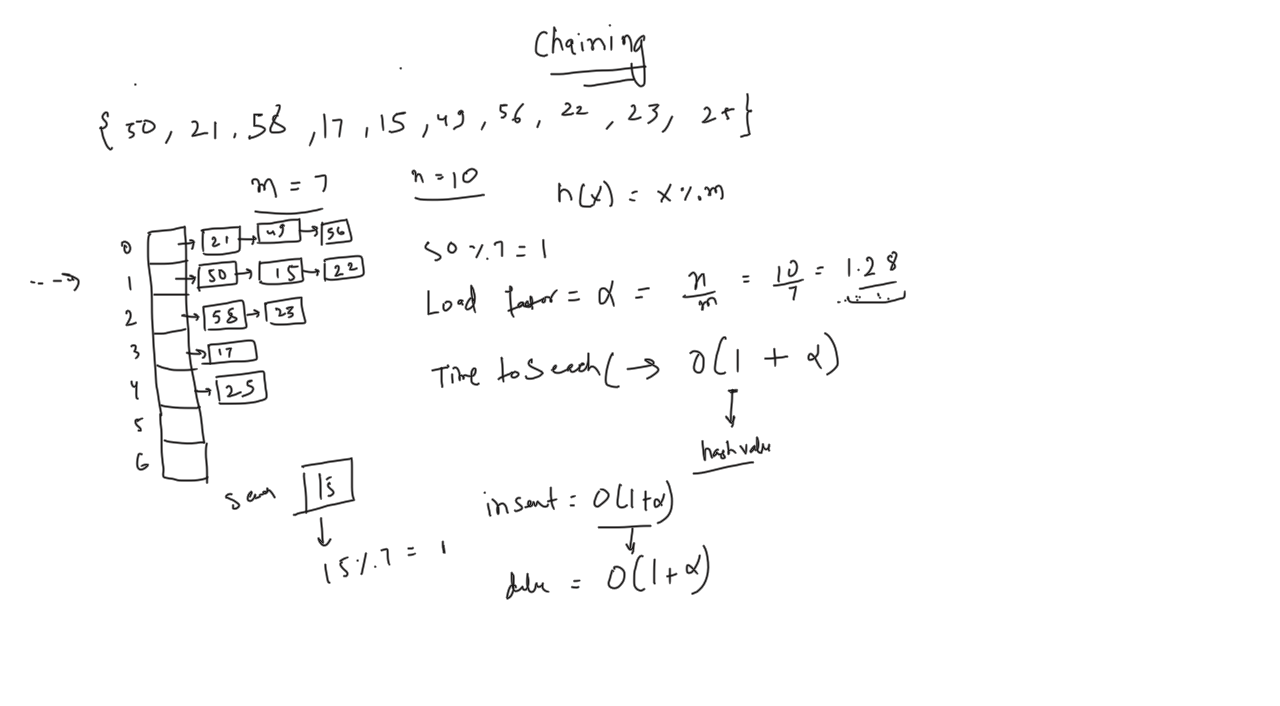 Chaining
{ 50, 21, 58, 17, 15, 49, 56, 22, 23, 25}
m = 7
n = 10
h(x) = x%m
0 → 21 → 49 → 56
1 → 50 → 15 → 22
2 → 58 → 23
3 → 17
4 → 25
5
6
50 % 7 = 1
Load factor = α = n/m = 10/7 = 1.28
Time to Seach( → O(1 + α)
hash value
15
15 % 7 = 1
insert = O(1+α)
= O(1+α)